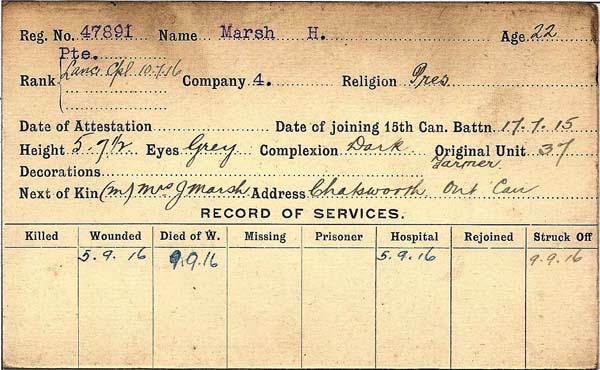 Reg. No. 47891 Name Marsh H. Age 22
Pte.
Rank Lance Cpl 10.7.16 Company 4. Religion Pres
Date of Attestation Date of joining 15th Can. Battn. 17.7.15
Height 5.7½ Eyes Grey Complexion Dark Original Unit 37
Decorations Farmer.
Next of Kin (m) Mrs J Marsh Address Chatsworth Ont Can
RECORD OF SERVICES.
Killed Wounded Died of W. Missing Prisoner Hospital Rejoined Struck Off
5.9.16 9.9.16 5.9.16 9.9.16